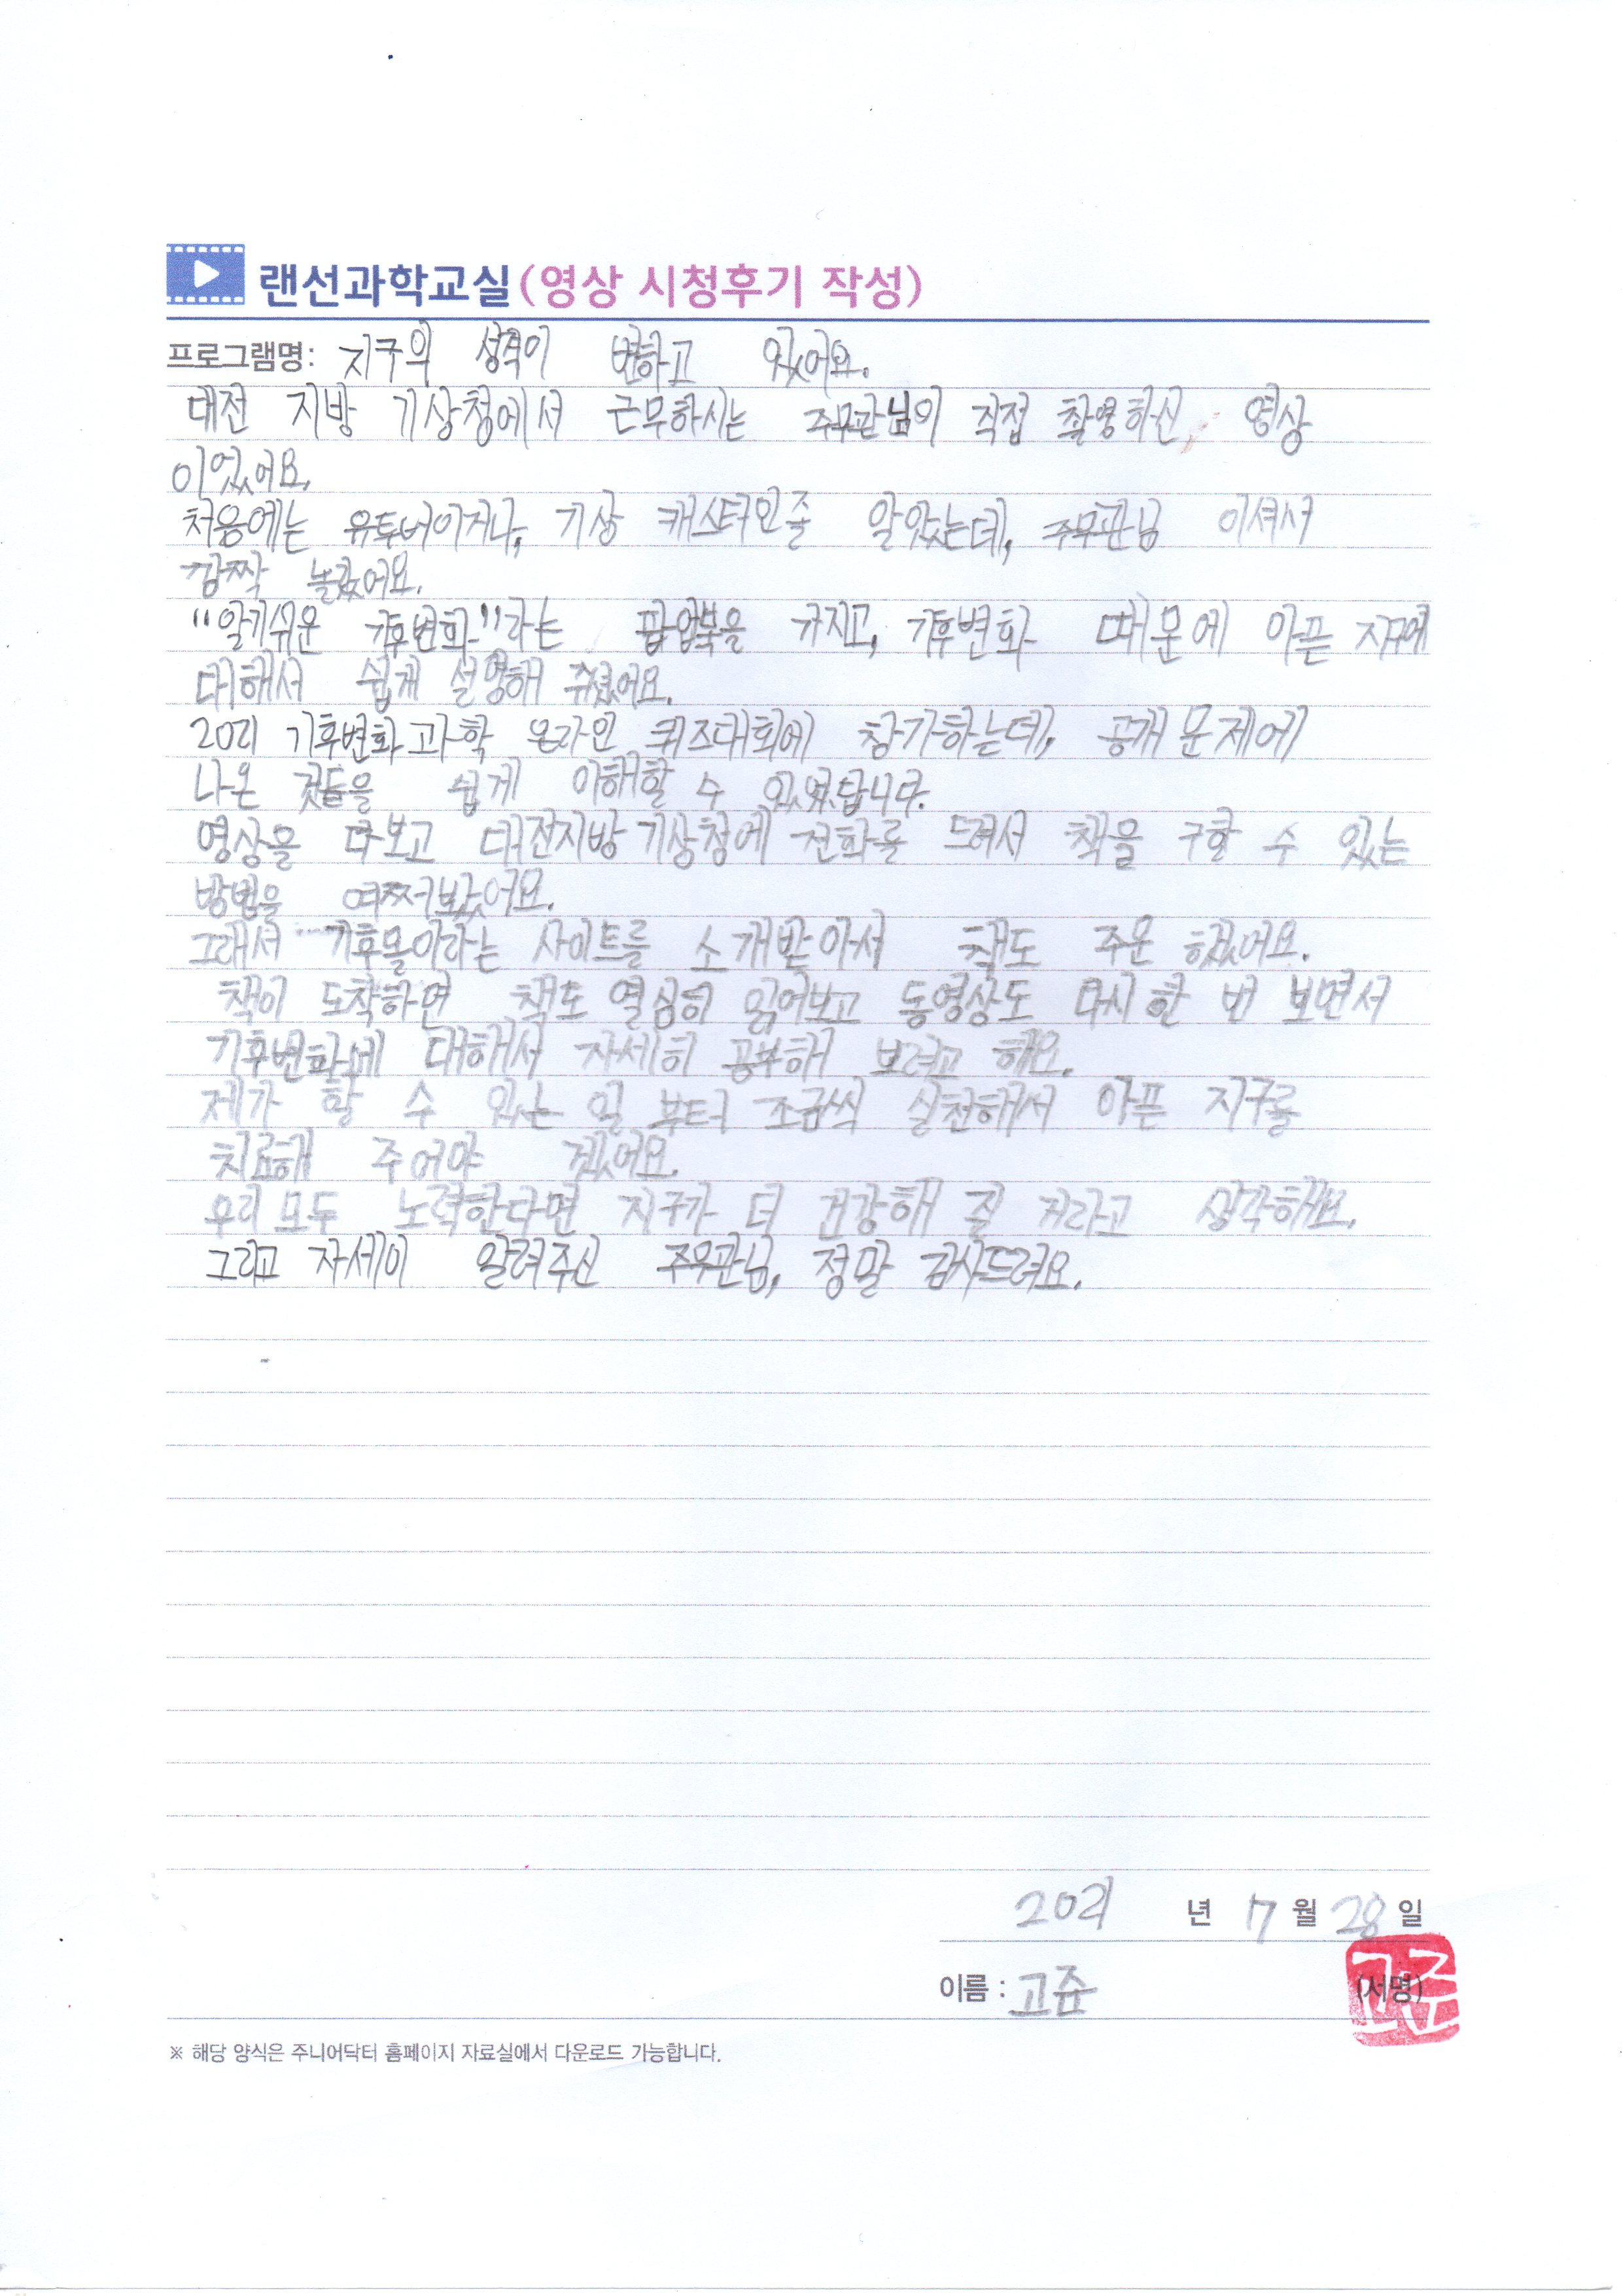 랜선과학교실(영상 시청후기 작성)
프로그램명: 지구의 성격이 변하고 있어요.
대전 지방 기상청에서 근무하시는 주무관님이 직접 촬영하신, 영상
이었어요.
처음에는 유투버이거나, 기상 캐스터인줄 알았는데, 주무관님 이셔서
깜짝 놀랐어요.
"알기쉬운 기후변화"라는 팝업북을 가지고, 기후변화 때문에 아픈 지구에
대해서 쉽게 설명해 주셨어요.
2021 기후변화과학 온라인 퀴즈대회에 참가하는데, 공개문제에
나온 것들을 쉽게 이해할 수 있었답니다.
영상을 다보고 대전지방기상청에 전화를 드려서 책을 구할 수 있는
방법을 여쭤봤어요.
그래서 기후몰이라는 사이트를 소개받아서 책도 주문 했어요.
책이 도착하면 책도 열심히 읽어보고 동영상도 다시 한 번 보면서
기후변화에 대해서 자세히 공부해 보려고 해요.
제가 할 수 있는 일 부터 조금씩 실천해서 아픈 지구를
치료해 주어야 겠어요.
우리 모두 노력한다면 지구가 더 건강해 질 거라고 생각해요.
그리고 자세이 알려주신 주무관님, 정말 감사드려요.
2021 년 7 월 28 일
이름 : 고준 (서명)
고준
※ 해당 양식은 주니어닥터 홈페이지 자료실에서 다운로드 가능합니다.